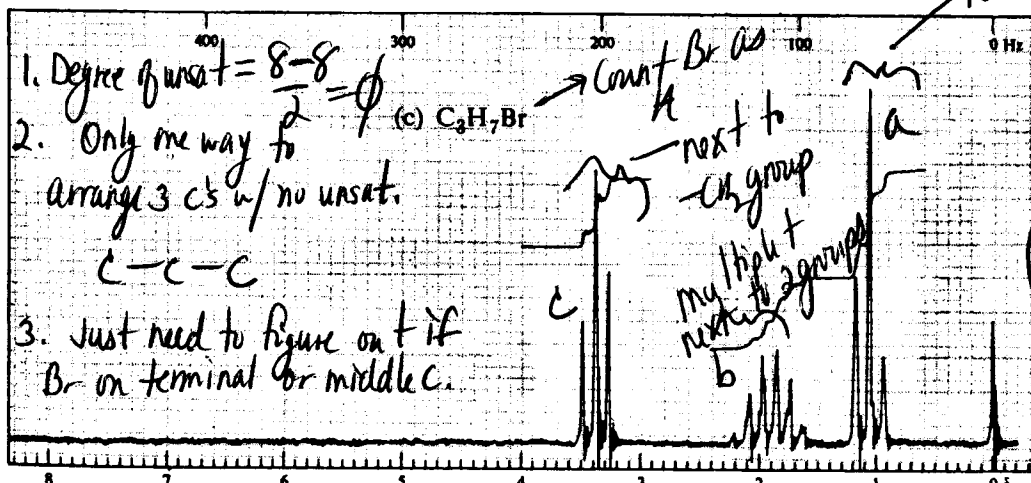 400 300 200 100 0 Hz
1. Degree of unsat = 8-8 / 2 = ϕ
(c) C₃H₇Br → Count Br as H
2. Only one way to
arrange 3 C's w/ no unsat.
C-C-C
3. Just need to figure out if
Br on terminal or middle C.
next to
-CH₂ group
multiplet
next to 2 groups
a
b
c
8 7 6 5 4 3 2 1 0 δ